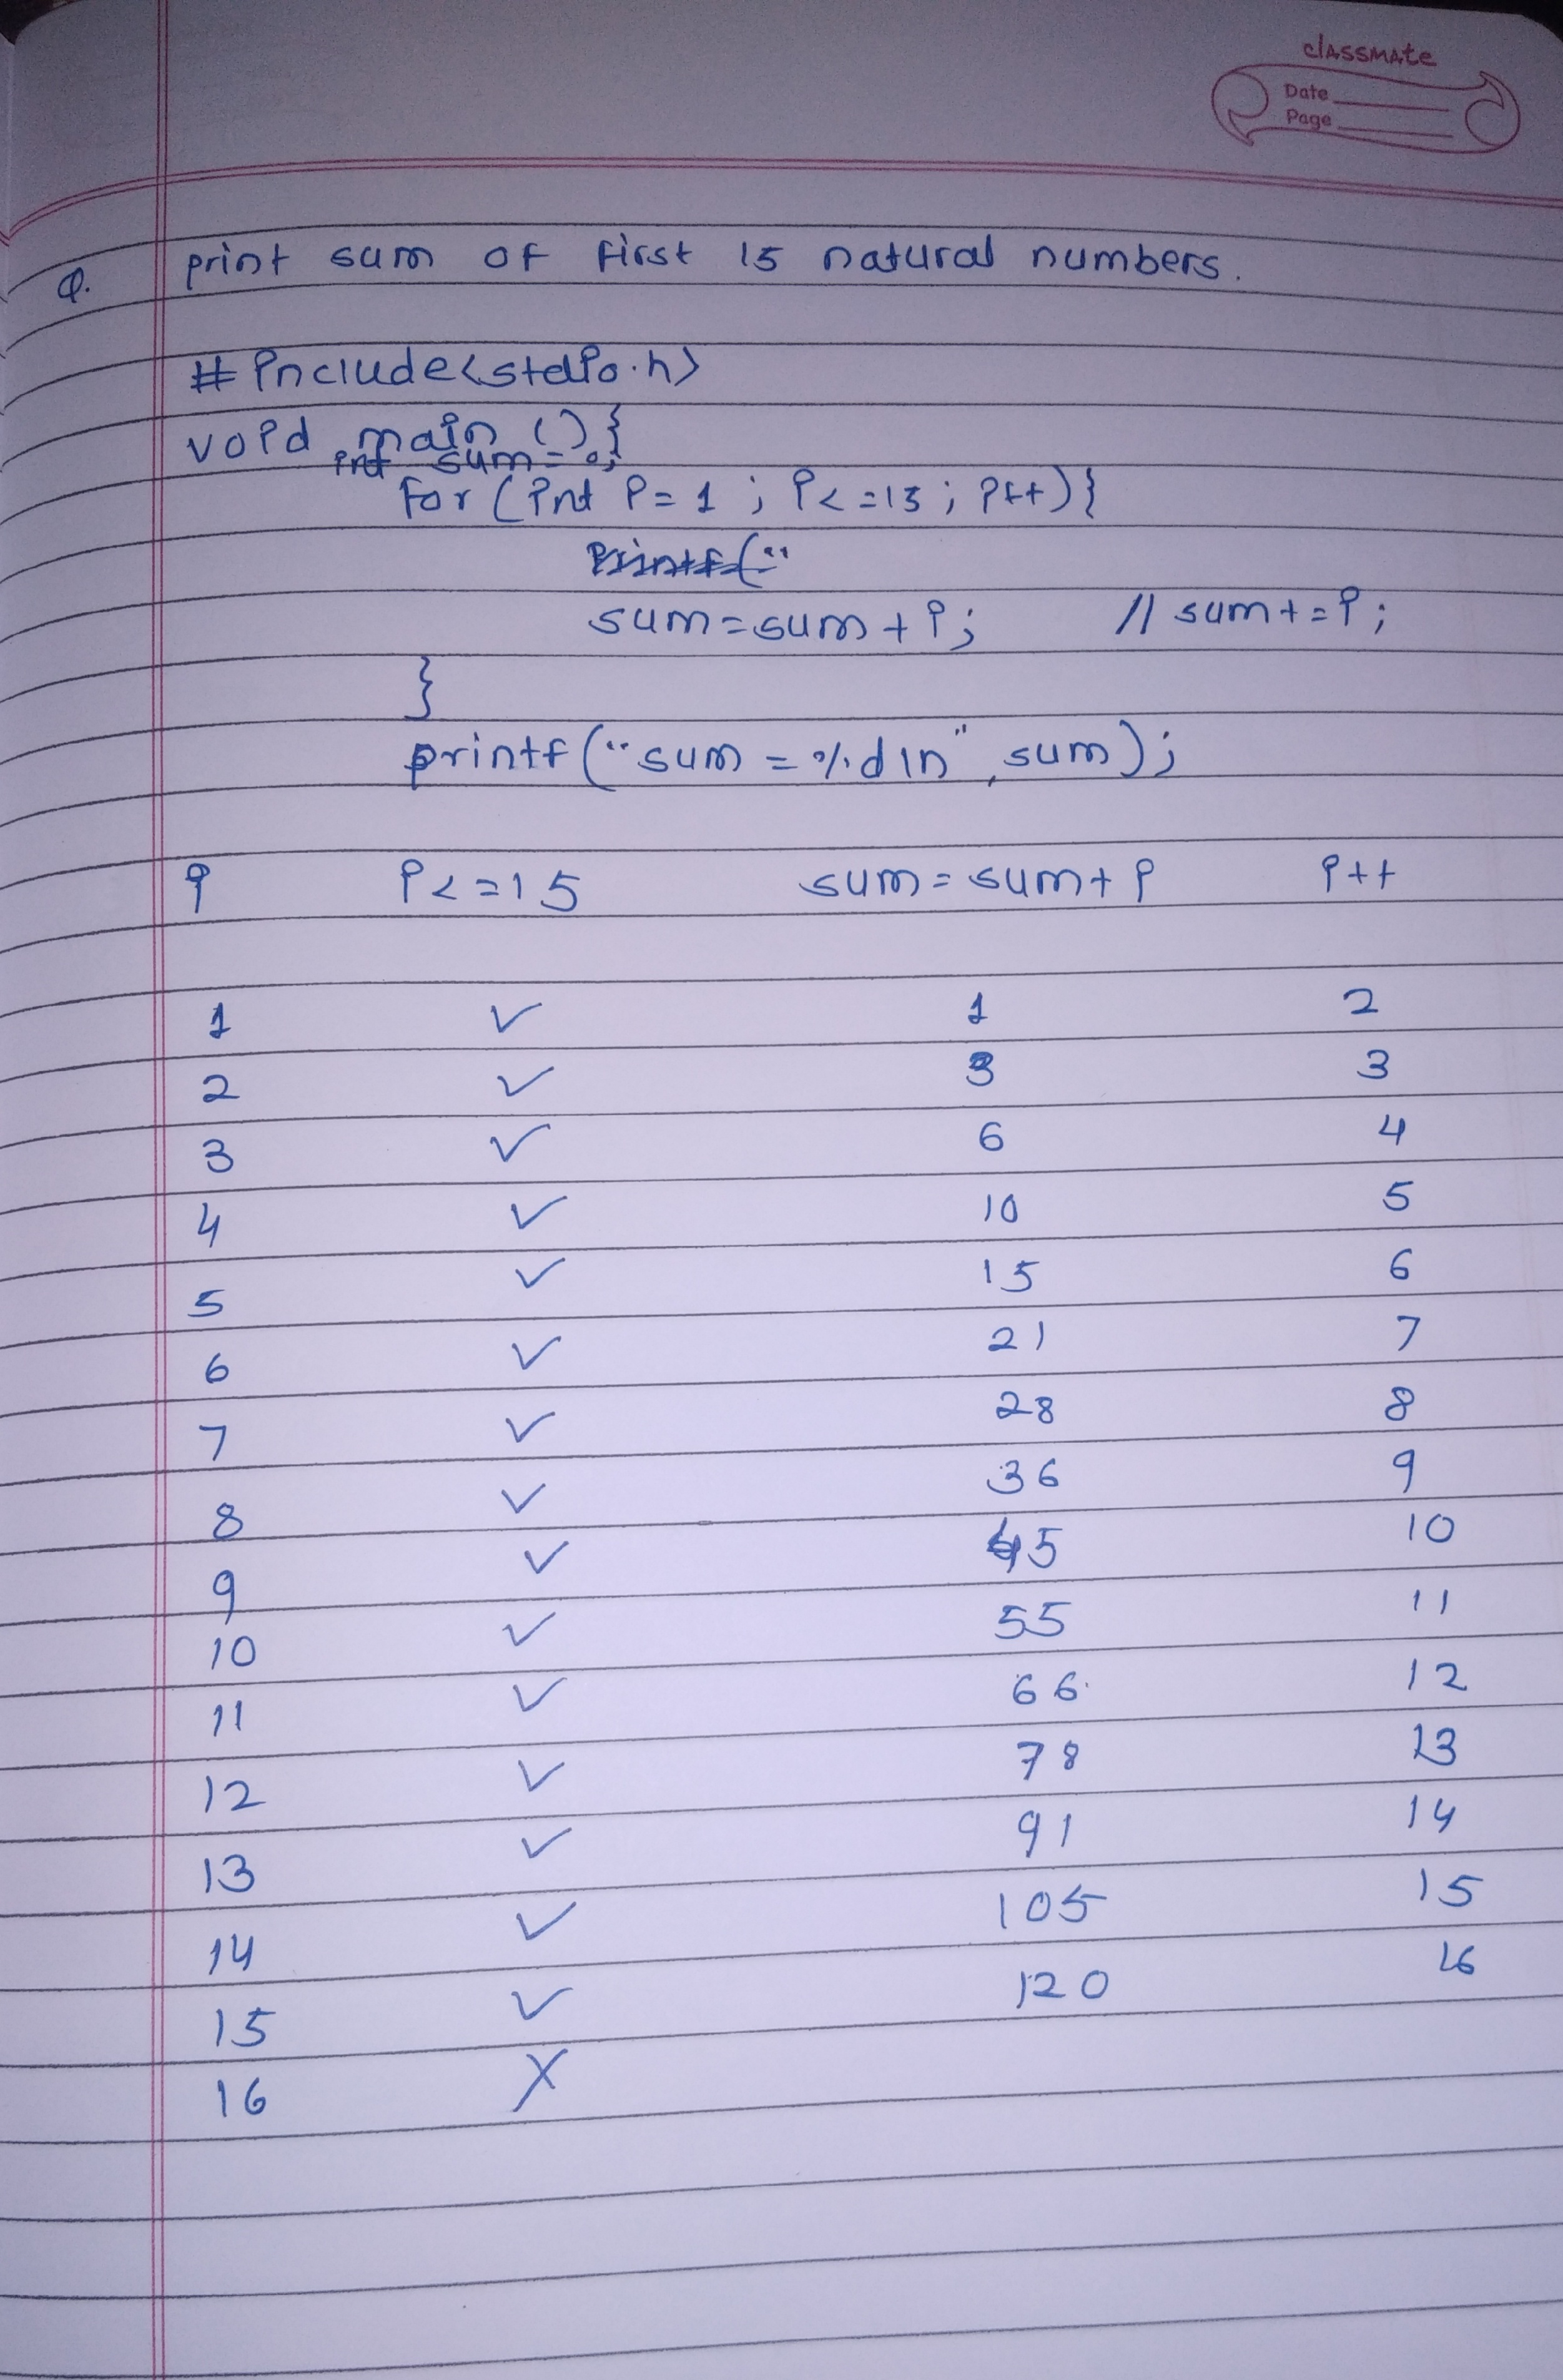 classmate
Date
Page
Q. print sum of first 15 natural numbers.
#include<stdio.h>
void main (){
int sum = 0;
for (int i=1 ; i<=15 ; i++){
printf("
sum=sum+i; // sum+=i;
}
printf("sum = %d\n", sum);
i i<=15 sum=sum+i i++
1 ✓ 1 2
2 ✓ 3 3
3 ✓ 6 4
4 ✓ 10 5
5 ✓ 15 6
6 ✓ 21 7
7 ✓ 28 8
8 ✓ 36 9
9 ✓ 45 10
10 ✓ 55 11
11 ✓ 66 12
12 ✓ 78 13
13 ✓ 91 14
14 ✓ 105 15
15 ✓ 120 16
16 X